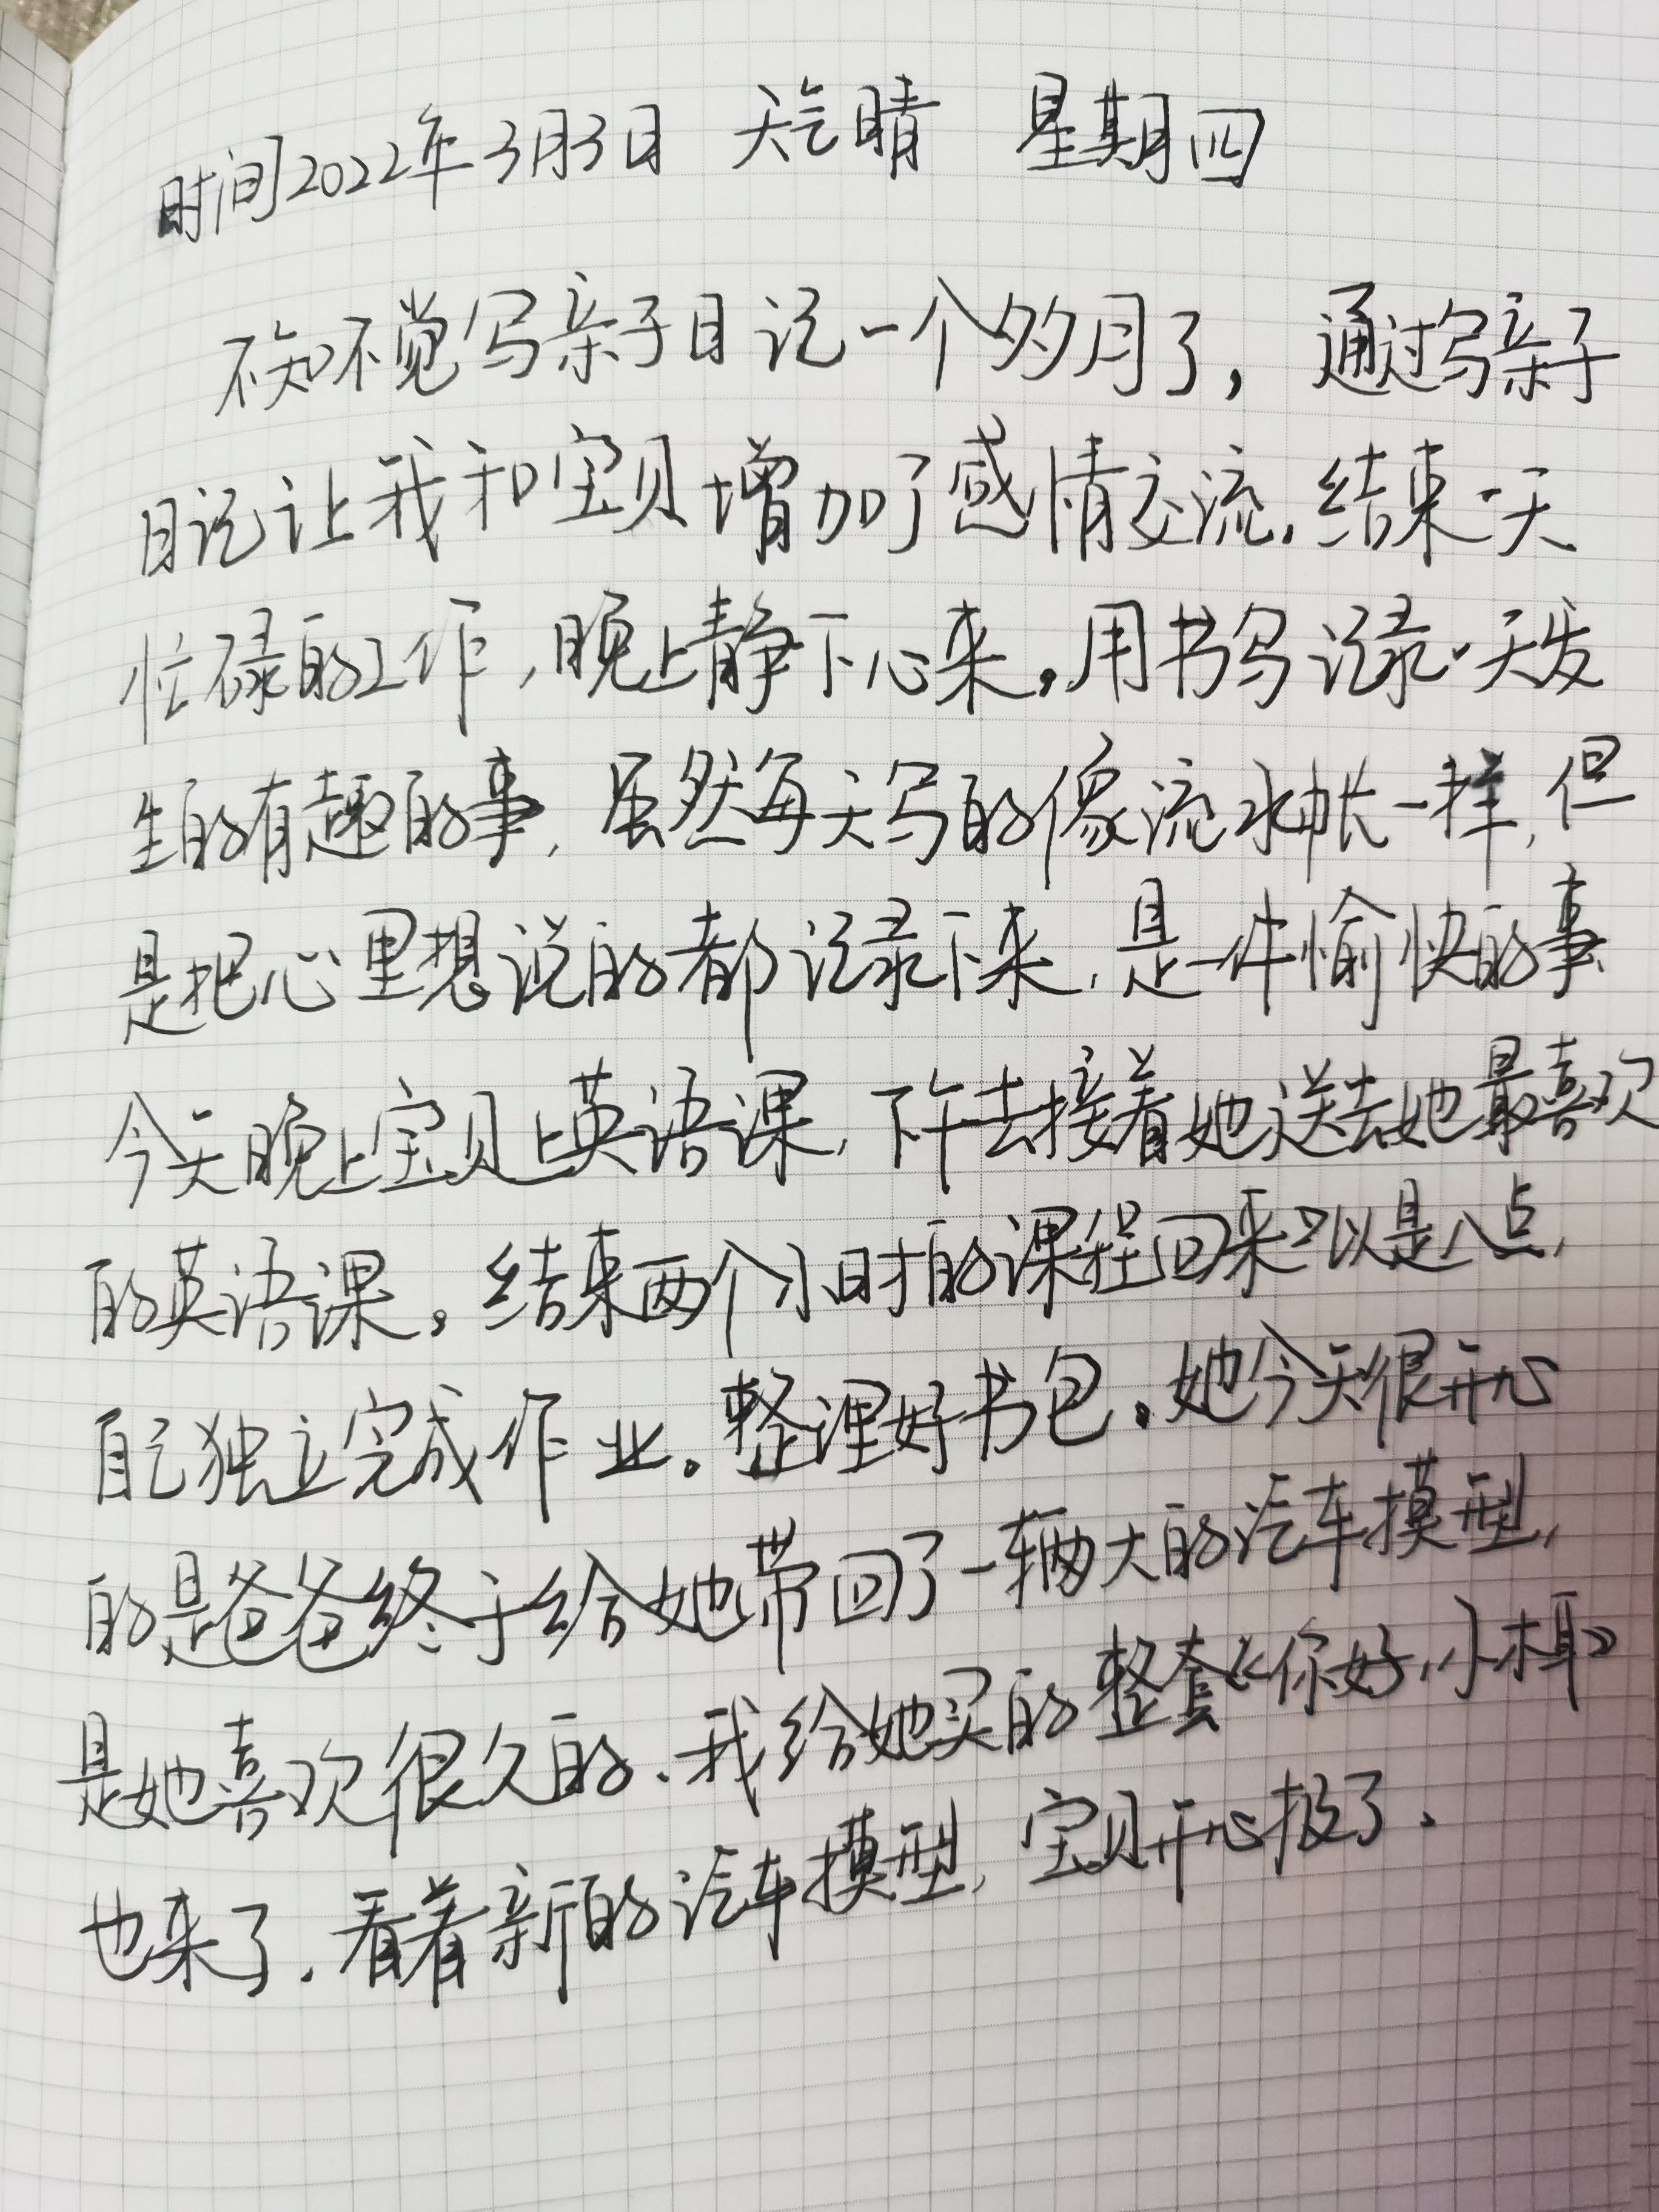 时间2022年3月3日 天气晴 星期四
不知不觉写亲子日记一个多月了，通过写亲子
日记让我和宝贝增加了感情交流，结束一天
忙碌的工作，晚上静下心来。用书写记录一天发
生的有趣的事，虽然每天写的像流水帐一样，但
是把心里想说的都记录下来，是一件愉快的事
今天晚上宝贝上英语课，下午去接着她送去她最喜欢
的英语课。结束两个小时的课程回来以是八点，
自己独立完成作业。整理好书包。她今天很开心
的是爸爸终于给她带回了一辆大的汽车模型，
是她喜欢很久的.我给她买的整套《你好，小木耳》
也来了.看着新的汽车模型，宝贝开心极了.